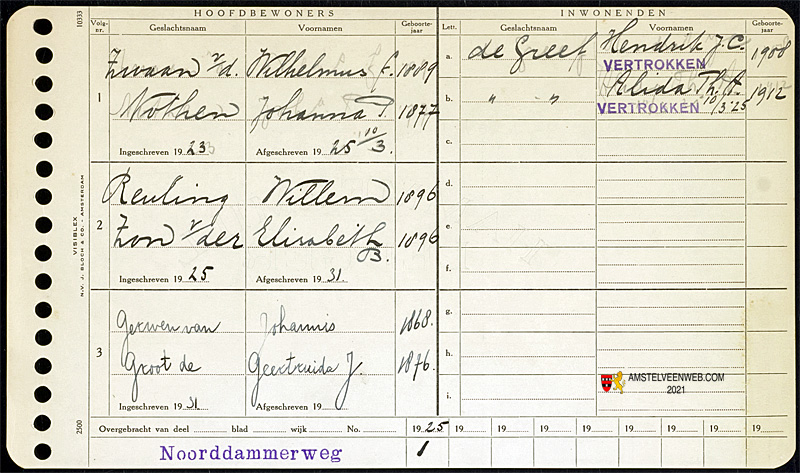 10333
HOOFDBEWONERS
INWONENDEN
Volg-nr. Geslachtsnaam Voornamen Geboorte-jaar Lett. Geslachtsnaam Voornamen Geboorte-jaar
1
Zwaan v/d. Wilhelmus f. 1889
Nothen Johanna P. 1877
Ingeschreven 19 23 Afgeschreven 19 25 10/3.
2
Reuling Willem 1896
Zon v/der Elisabeth B. 1896
Ingeschreven 19 25 Afgeschreven 19 31.
3
Gerwen van Johannis 1868.
Groot de Geertruida J. 1876.
Ingeschreven 19 31 Afgeschreven 19
a. de Greef Hendrik J.C. 1908
VERTROKKEN
b. " " Alida Th. A. 1912
VERTROKKEN 10/3 '25
c.
d.
e.
f.
g.
h.
i.
AMSTELVEENWEB.COM
2021
Overgebracht van deel blad wijk No. 19 25 19 19 19 19 19 19 19 19
Noorddammerweg 1
VISIBLEX
N.V. J. BLOCH & CO. - AMSTERDAM
2500